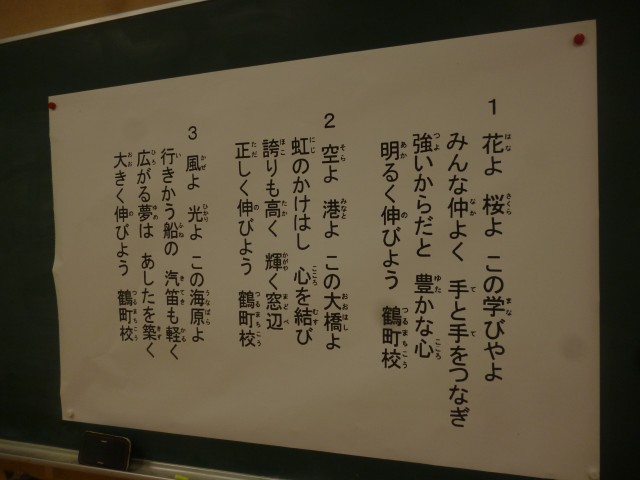 1
花よ 桜よ この学びやよ
みんな仲よく 手と手をつなぎ
強いからだと 豊かな心
明るく伸びよう 鶴町校
2
空よ 港よ この大橋よ
虹のかけはし 心を結び
誇りも高く 輝く窓辺
正しく伸びよう 鶴町校
3
風よ 光よ この海原よ
行きかう船の 汽笛も軽く
広がる夢は あしたを築く
大きく伸びよう 鶴町校